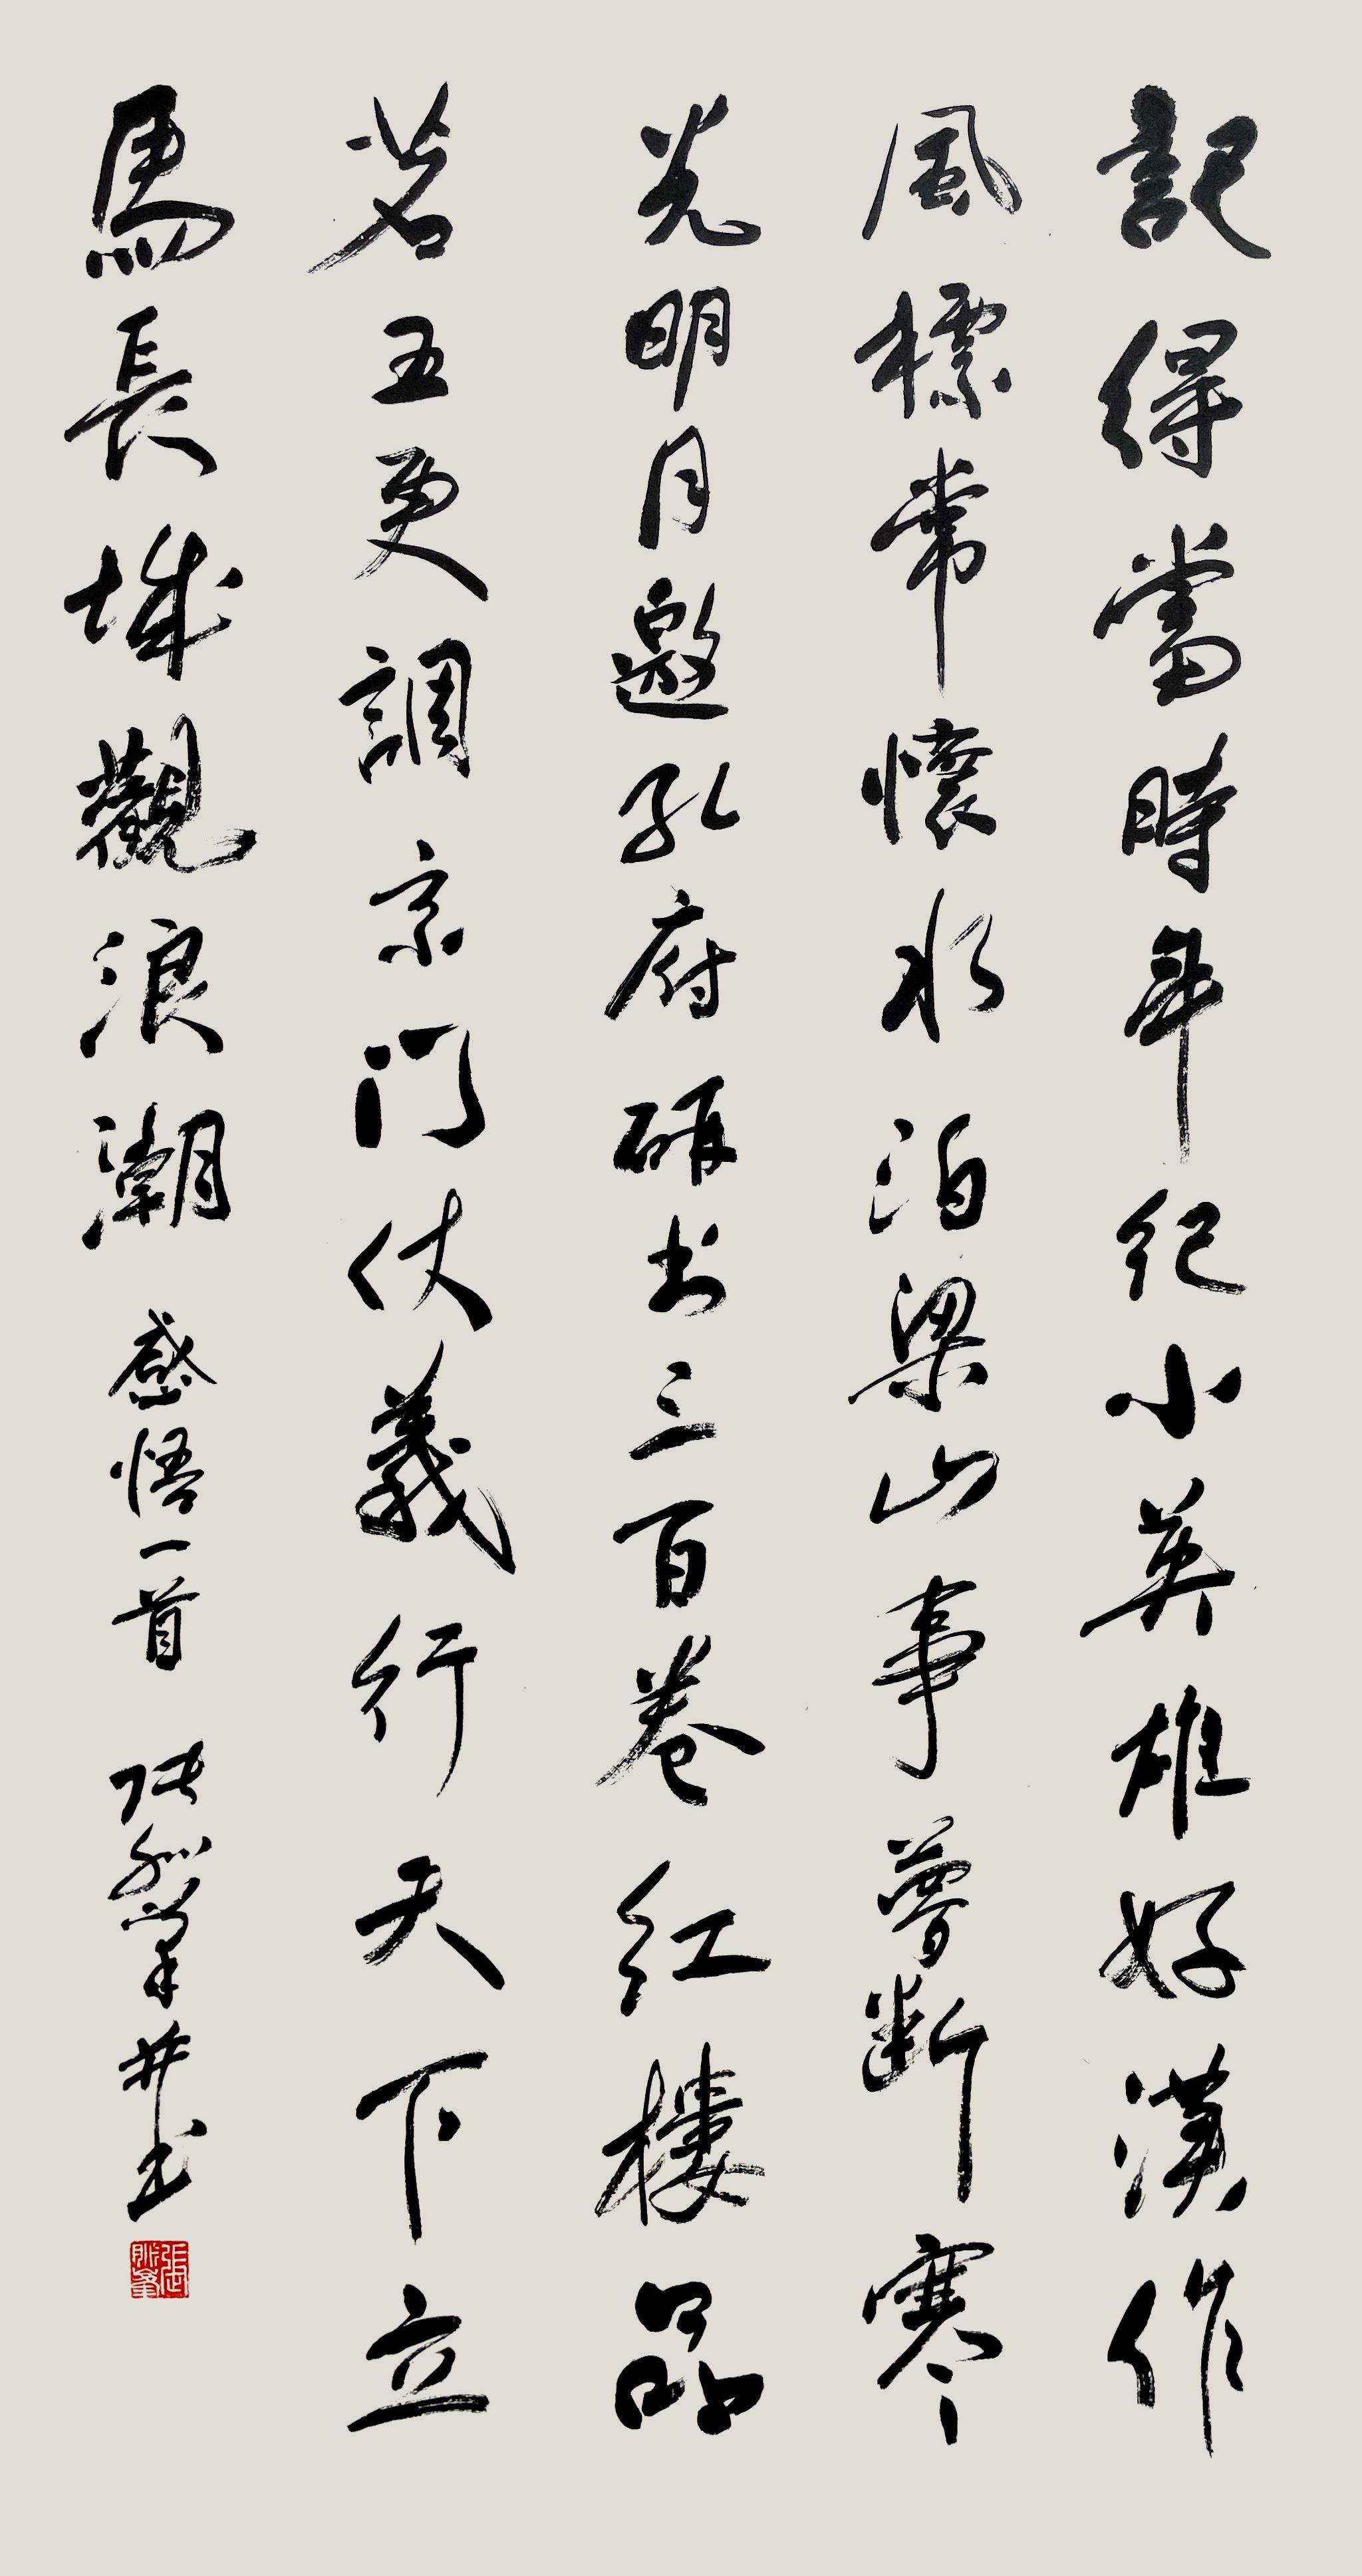 記得當時年紀小英雄好漢作
風標常懷水泊梁山事夢斷寒
光明月邀孔府研书三百卷红樓品
茗五更調京门仗義行天下立
馬長城觀浪潮 感悟一首 张肇并书